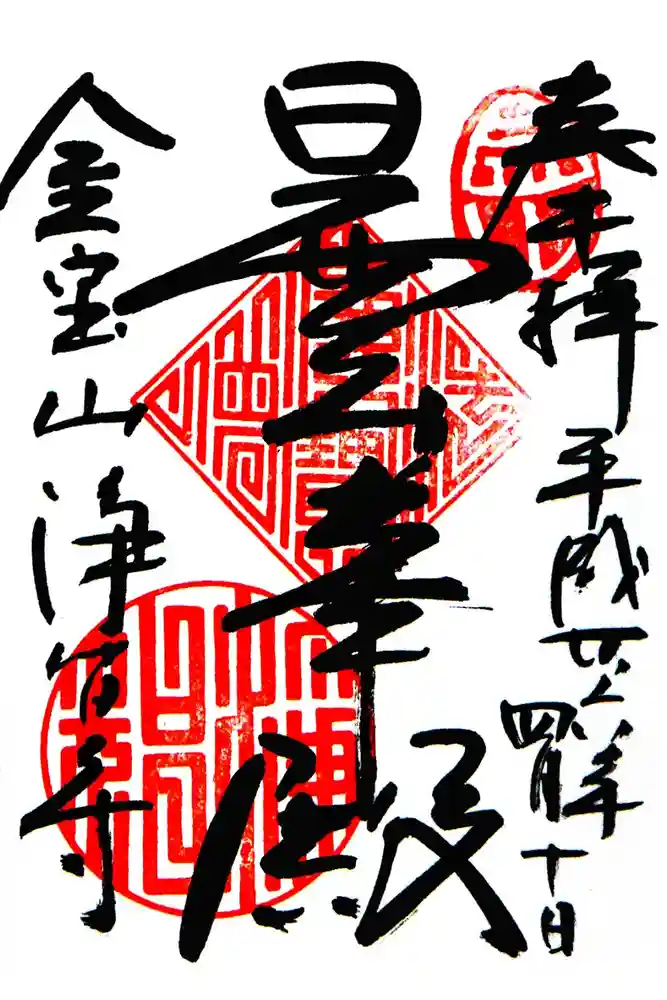 奉拝 平成廿六年
四月十日
曇華殿
金宝山 浄智寺